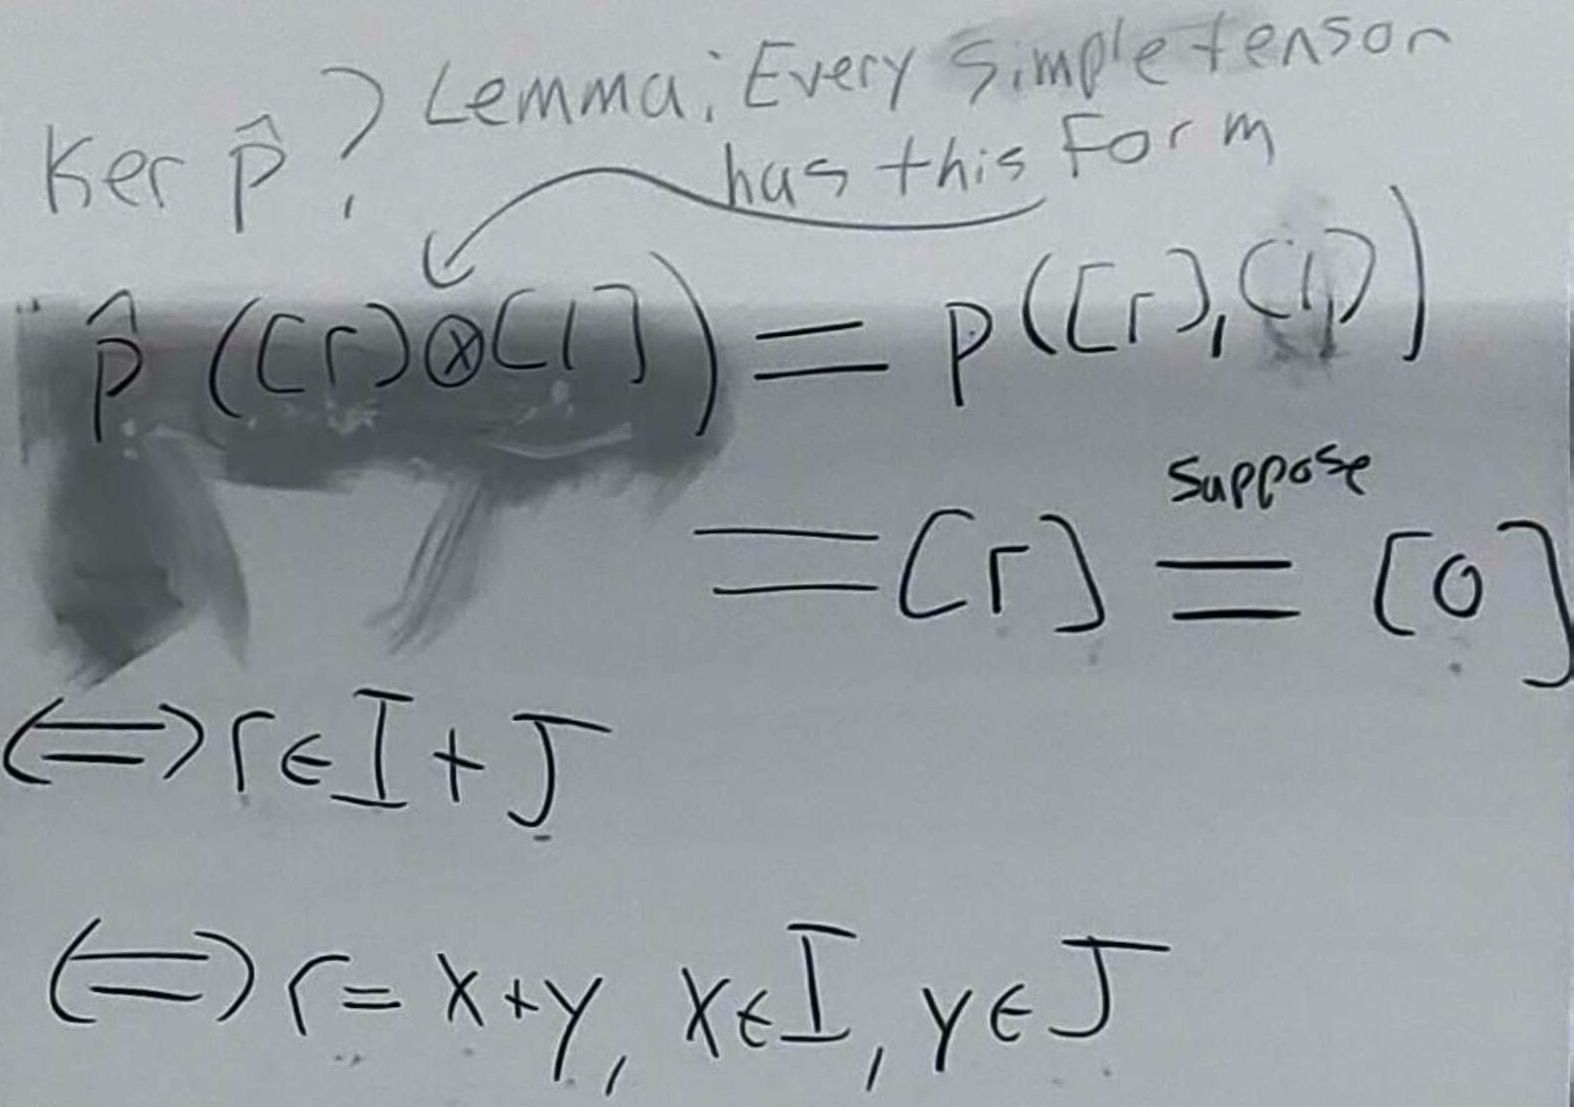 Ker p̂ ? Lemma: Every Simple tensor
has this Form
p̂ ([r]⊗[1]) = p([r],[1])
suppose
= [r] = [0]
⟺ r ∈ I + J
⟺ r = x + y, x ∈ I, y ∈ J